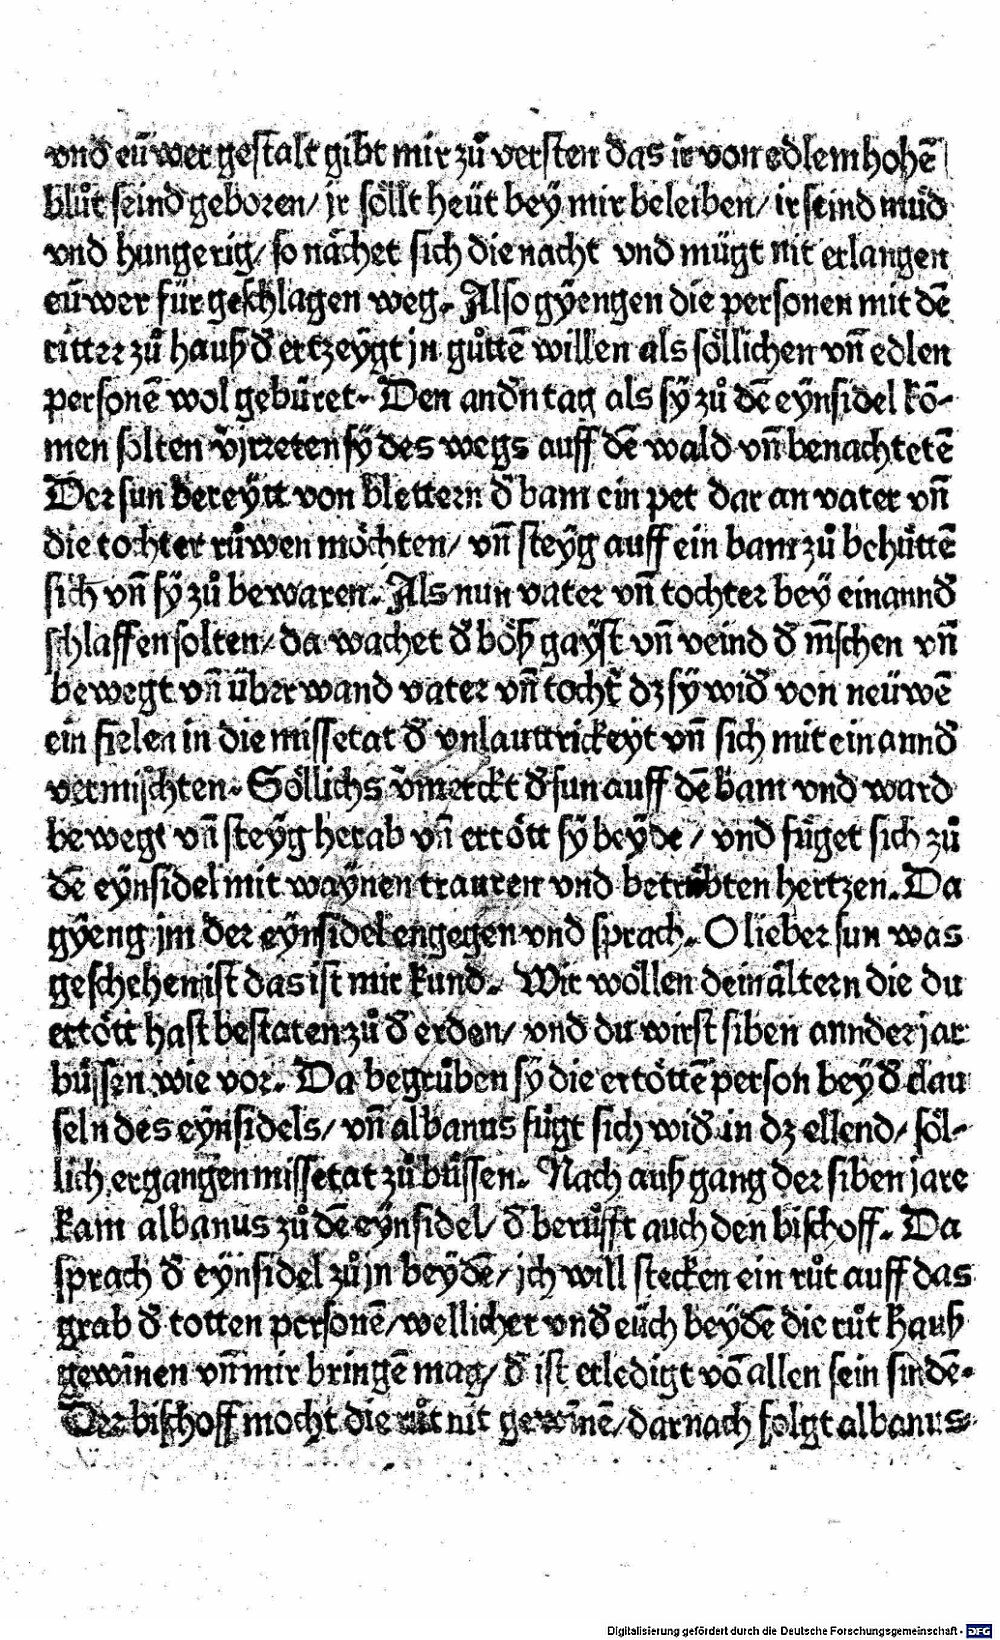 vnd eüwer gestalt gibt mir zů versten das ir von edlem hohē
blůt seind geboren/ jr söllt heüt bey mir beleiben/ ir seind müd
vnd hungerig/ so nächet sich die nacht vnd mügt nit erlangen
eüwer für geschlagen weg. Also gyengen die personen mit dē
ritter zů hauß đ ertzeygt jn gůttē willen als söllichen vñ edlen
personē wol gebüret. Den anđn tag als sÿ zů dē eÿnsidel kō-
men solten v̄jrreten sÿ des wegs auff dē wald vñ benachtetē
Der sun bereÿtt von blettern đ bam ein pet dar an vater vñ
die tochter růwen möchten/ vñ steÿg auff ein bam zů behüttē
sich vñ sÿ zů bewaren. Als nun vater vñ tochter bey einannđ
schlaffen solten/ da wachet đ böß gaÿst vñ veind đ m̄schen vñ
bewegt vñ überwand vater vñ tochť dz sÿ wiđ von neüwē
ein fielen in die missetat đ vnlauttrickeyt vñ sich mit ein annđ
vermischten. Söllichs v̄merckt đ sun auff dē bam vnd ward
bewegt vñ steÿg herab vñ ertött sÿ beÿde/ vnd füget sich zů
dē eÿnsidel mit waÿnen trauren vnd betrübten hertzen. Da
gyeng jm der eÿnsidel engegen vnd sprach. O lieber sun was
geschehen ist das ist mir kund. Wir wöllen dein ältern die du
ertött hast bestaten zů đ erden/ vnd du wirst siben annder jar
büssen wie vor. Da begrůben sÿ die ertöttē person beÿ đ clau
seln des eÿnsidels/ vñ albanus fügt sich wiđ in dz ellend/ söl-
lich ergangen missetat zů büssen. Nach auß gang der siben jare
kam albanus zů dē eÿnsidel/ đ berůfft auch den bischoff. Da
sprach đ eÿnsidel zů jn beydē/ jch will stecken ein růt auff das
grab đ totten personē/ wellicher vnđ eüch beÿdē die růt herauß
gewīnen vñ mir bringē mag/ đ ist erledigt vō allen sein sindē.
Der bischoff mocht die růt nit gewīnē/ darnach folgt albanus
Digitalisierung gefördert durch die Deutsche Forschungsgemeinschaft - DFG